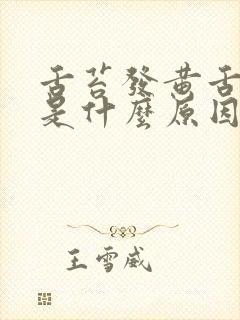 舌苔發黃舌
是什麼原因
王雪威